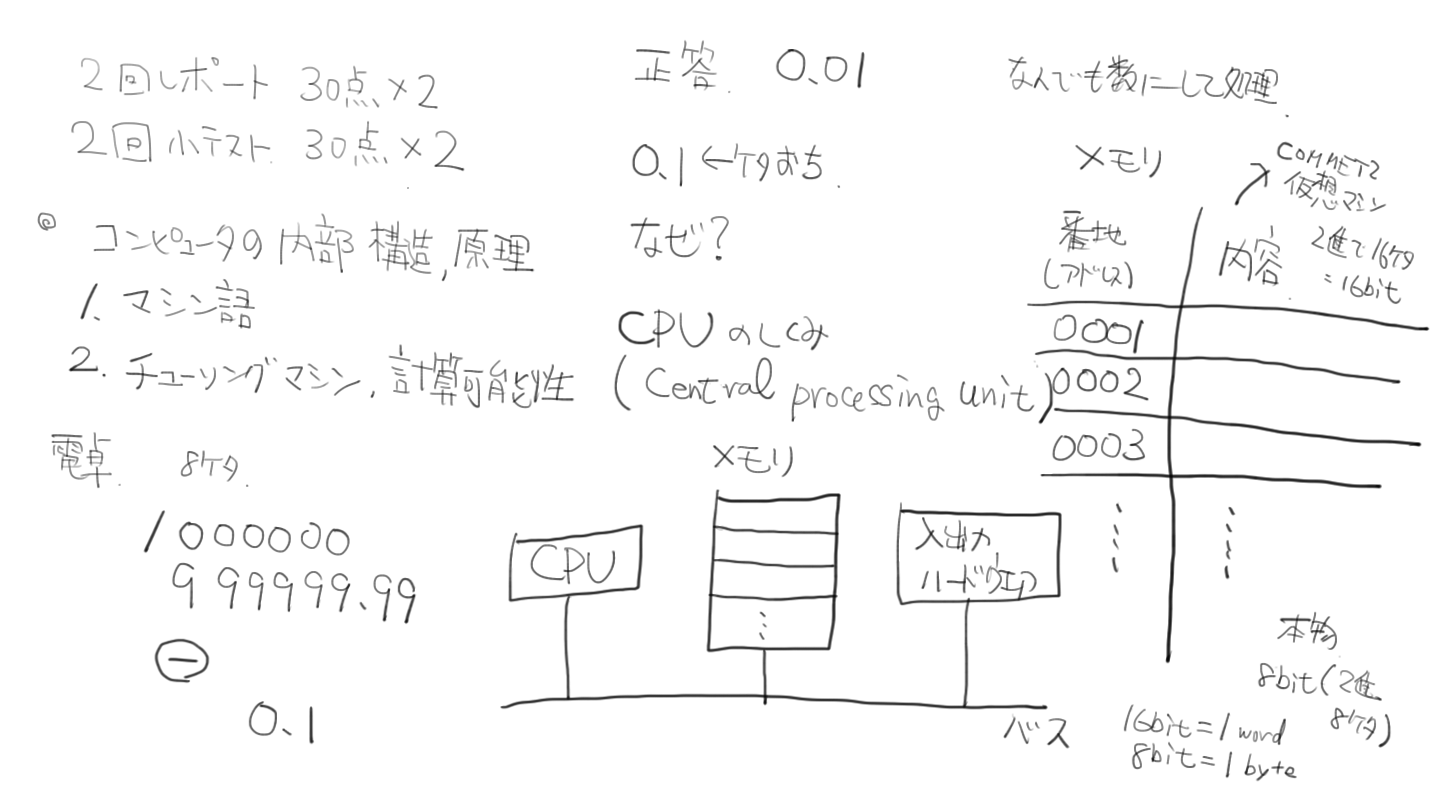 2回レポート 30点×2
2回小テスト 30点×2
◎ コンピュータの内部構造,原理
1. マシン語
2. チューリングマシン,計算可能性
電卓 8ケタ
1000000
999999.99
⊖
0.1
正答 0.01
0.1←ケタおち
なぜ?
CPUのしくみ
(Central processing unit)
CPU
メモリ
入出力
ハードウェア
バス
なんでも数にして処理
メモリ
COMMET2
仮想マシン
番地
(アドレス)
内容
2進で16ケタ
=16bit
0001
0002
0003
本物
8bit(2進
8ケタ)
16bit=1 word
8bit=1 byte